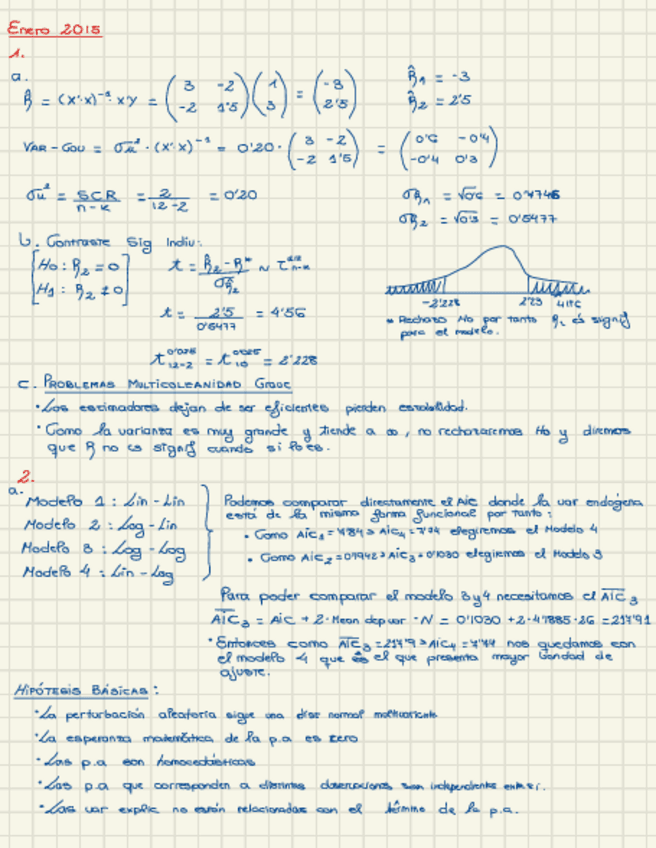 Enero 2015
1.
a.
β̂ = (X'·X)⁻¹·XY = (3 -2; -2 1'5) (1; 3) = (-3; 2'5)
β̂1 = -3
β̂2 = 2'5
VAR-COV = σu² · (X'·X)⁻¹ = 0'20 · (3 -2; -2 1'5) = (0'6 -0'4; -0'4 0'3)
σu² = SCR/n-k = 2/12-2 = 0'20
σβ1 = √0'6 = 0'7746
σβ2 = √0'3 = 0'5477
b. Contraste Sig Indiv:
H0: β2 = 0
H1: β2 ≠ 0
t = β̂2 - β*/σβ̂2 ~ t n-k
t = 2'5/0'5477 = 4'56
-2'228 2'23 4'56
* Rechazo Ho por tanto β2 es signif
para el modelo.
t 0'025 12-2 = t 0'025 10 = 2'228
C. PROBLEMAS MULTICOLEANIDAD Grade
• Los estimadores dejan de ser eficientes pierden estabilidad.
• Como la varianza es muy grande y tiende a ∞, no rechazaremos Ho y diremos
que β no es signif cuando si lo es.
2.
a.
Modelo 1: Lin - Lin
Modelo 2: Log - Lin
Modelo 3: Log - Log
Modelo 4: Lin - Log
Podemos comparar directamente el Aic donde la var endógena
está de la misma forma funcional por tanto:
• Como Aic1 = > Aic4 = elegiremos el Modelo 4
• Como Aic2 = > Aic3 = 0'1030 elegiremos el Modelo 3
Para poder comparar el modelo 3 y 4 necesitamos el AIC3
AIC3 = AIC + 2·Mean dep var ·N = 0'1030 + 2·4'7885·26 =
• Entonces como AIC3 = > AIC4 = nos quedamos con
el modelo 4 que es el que presenta mayor bondad de
ajuste.
HIPÓTESIS BÁSICAS:
• La perturbación aleatoria sigue una distr normal multivariante
• La esperanza matemática de la p.a es zero
• Las p.a son homocedásticas
• Las p.a que corresponden a distintas observaciones son independientes entre sí.
• Las var explic no están relacionadas con el término de la p.a.